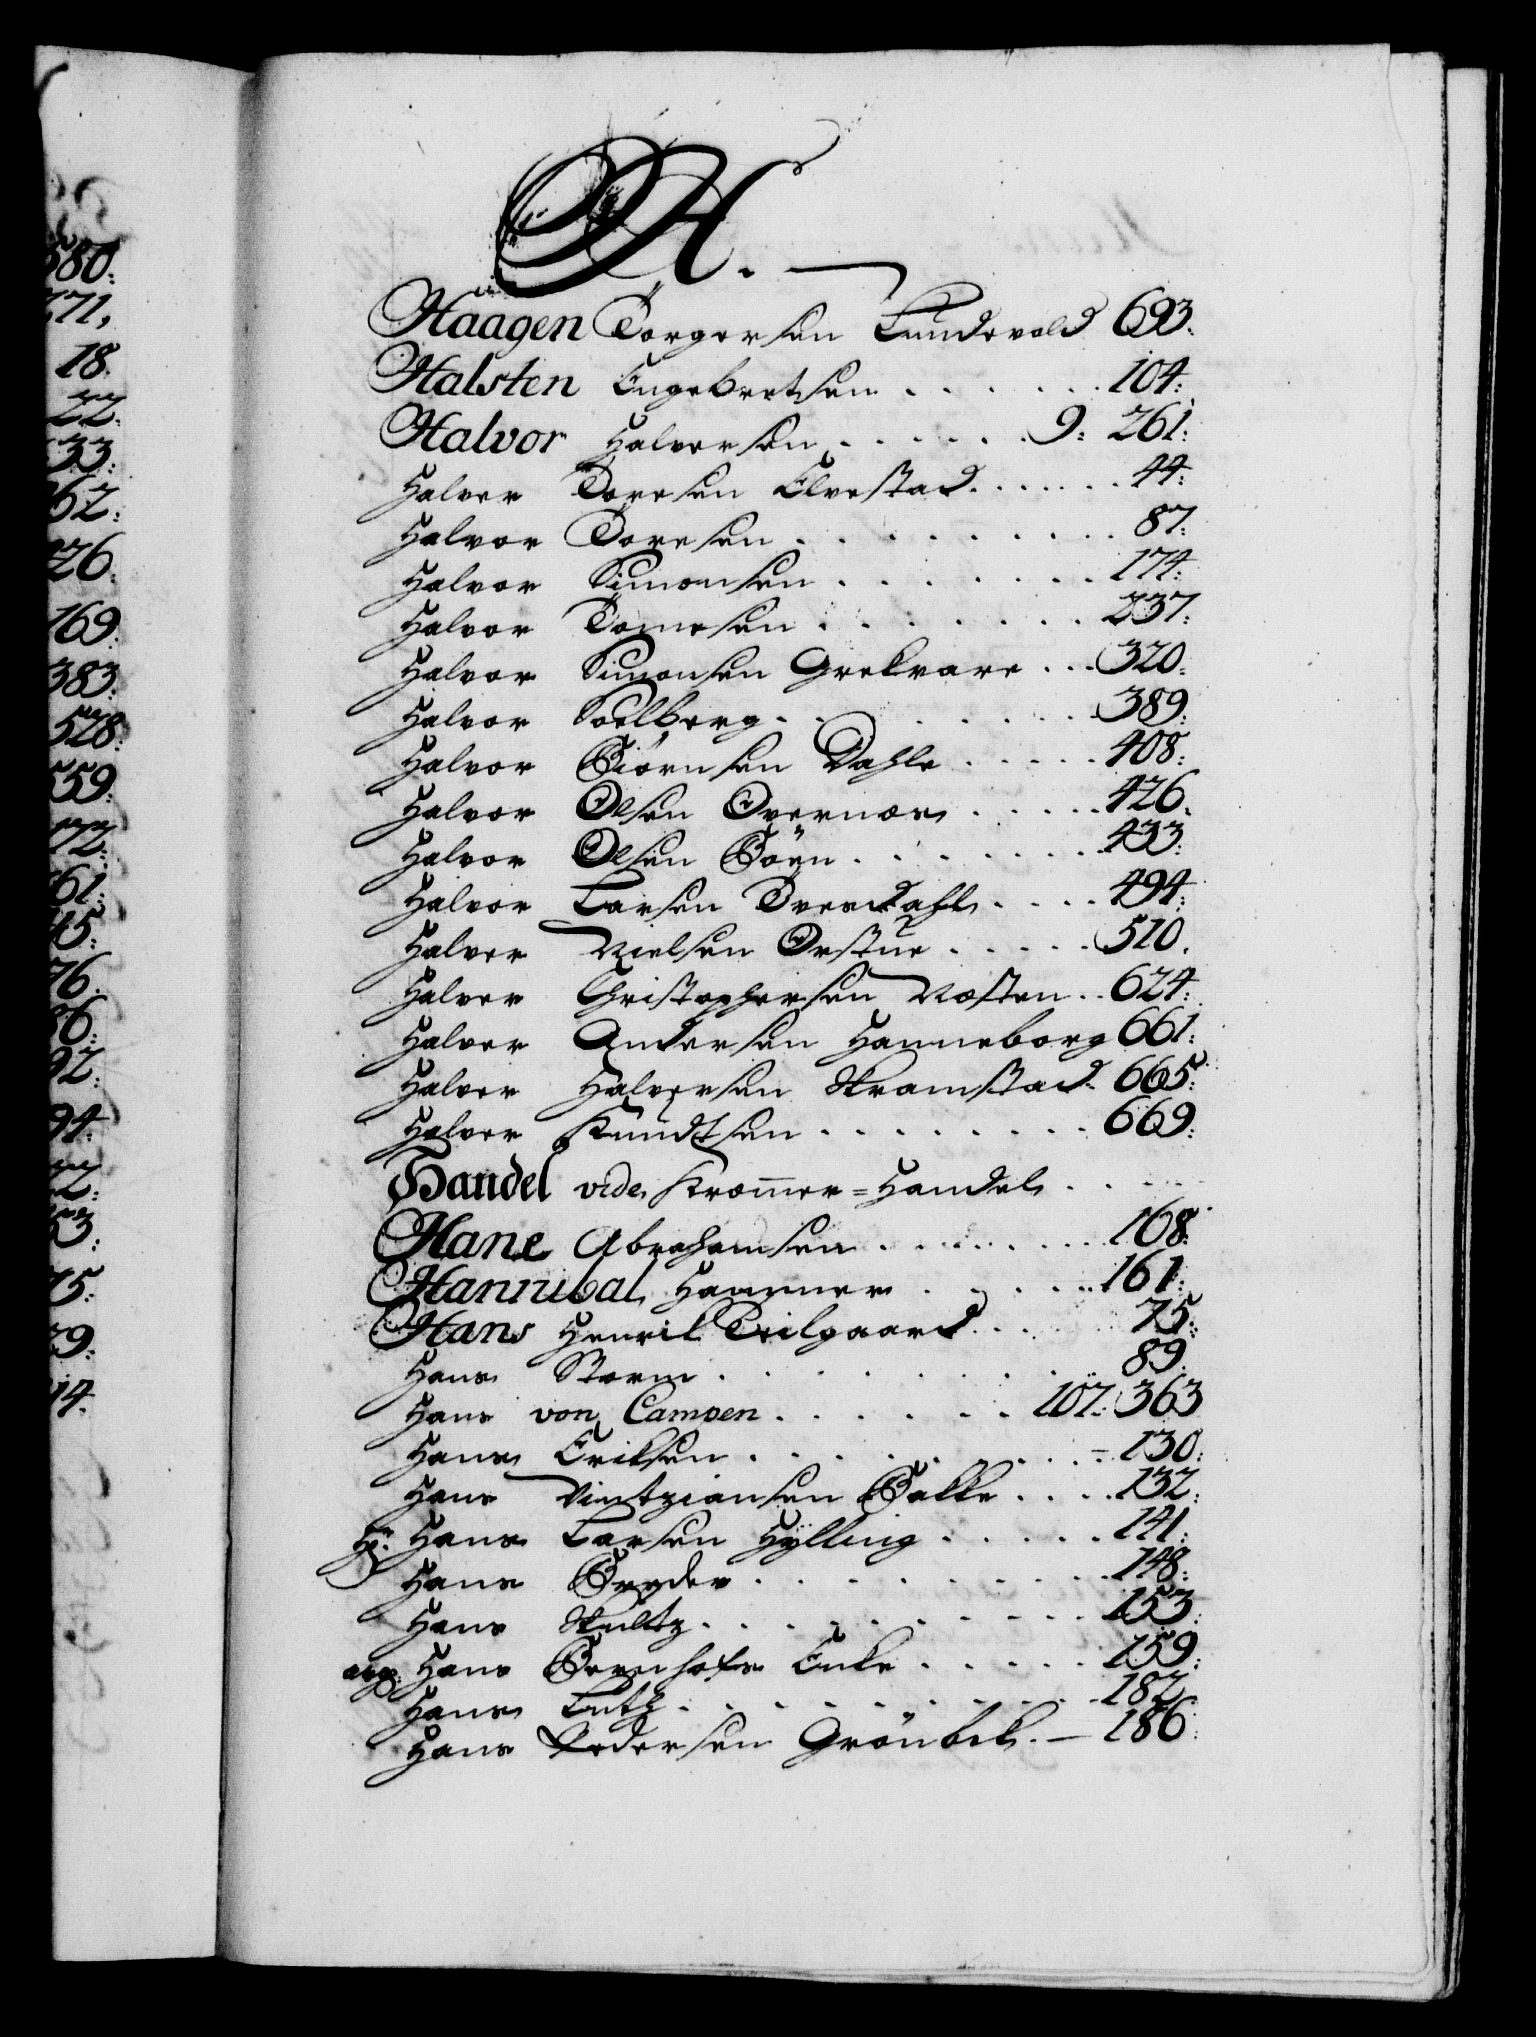 580:
771,
18.
22:
33:
62:
226:
169.
383.
528:
559:
72:
61:
45:
76.
26:
92:
94:
2:
53:
75:
29:
14.
H.
Haagen Torgersen Lundevold 693:
Halsten Engebretsen . . . . . . 104:
Halvor Halvorsen . . . . . . 9: 261:
Halvor Toresen Elvestad . . . . . . 44:
Halvor Toresen . . . . . . . . . 87:
Halvor Simonsen . . . . . . . 174:
Halvor Tomesen . . . . . . . 237:
Halvor Simonsen Grekvare . . . 320:
Halvor Soelberg . . . . . . . . 389:
Halvor Biörnsen Dahle . . . . . 408:
Halvor Olsen Overnæs . . . . . 426.
Halvor Olsen Böen . . . . . . . 433:
Halvor Larsen Tverdahl . . . . 494:
Halvor Nielsen Orstue . . . . . 510.
Halvor Christophersen Næsten . . 624:
Halvor Andersen Hanneborg 661:
Halvor Halvorsen Skramstad 665:
Halvor Knudtsen . . . . . . . . 669:
Handel vide Kramer=Handel . . . . .
Hane Abrahamsen . . . . . . . 168:
Hannibal Hammer . . . . . . 161:
Hans Henrik Teilgaard . . . 75:
Hans Storm . . . . . . . . . 89:
Hans von Campen . . . . . . 107: 363
Hans Eriksen . . . . . . . . 130:
Hans Vintziansen Bakke . . . . 132:
Hr: Hans Larsen Hylling . . . . . 141:
Hans Bryder . . . . . . . . . 148:
Hans Skultz . . . . . . . . . 153:
avg: Hans Bernhofts Enke . . . . . 159:
Hans Luth . . . . . . . . . . 182:
Hans Pedersen Grönbek . — 186: